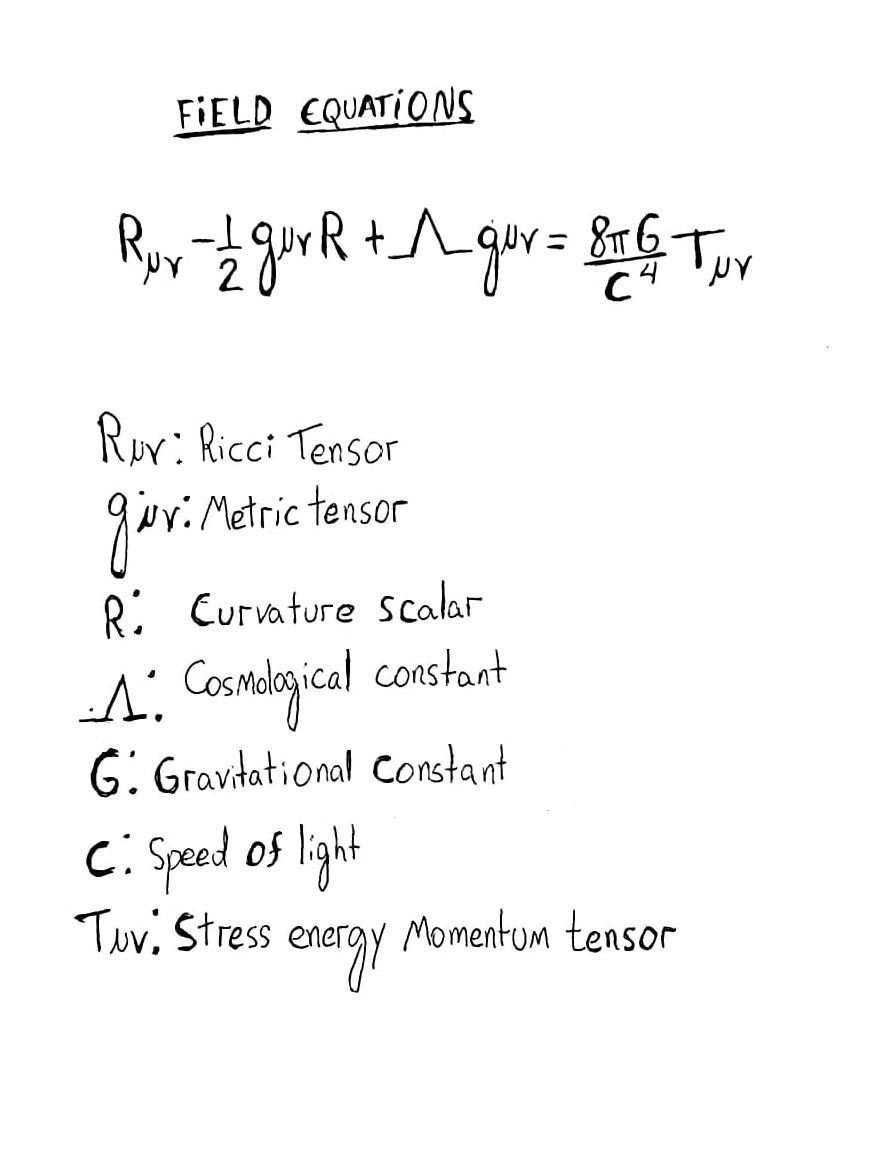 FiELD EQUATiONS
Rμν - 1/2 gμν R + Λ gμν = 8πG/C⁴ Tμν
Rμν: Ricci Tensor
gμν: Metric tensor
R: Curvature scalar
Λ: Cosmological constant
G: Gravitational Constant
C: Speed of light
Tμν: Stress energy Momentum tensor